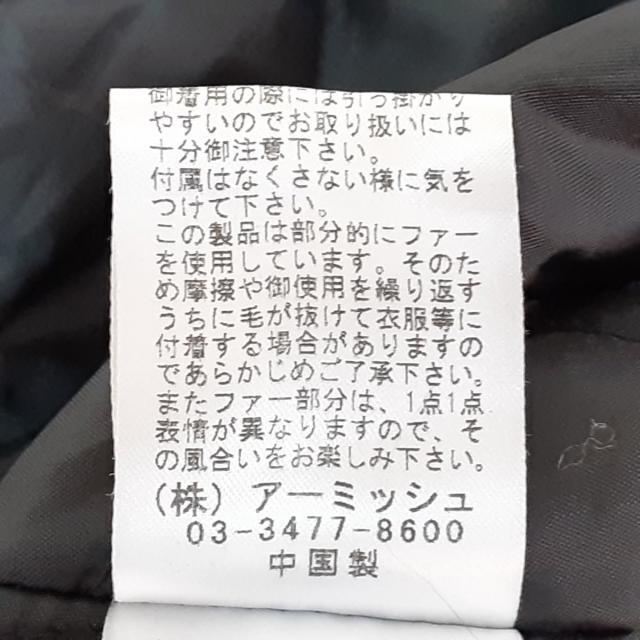 御着用の際には引っ掛かり
やすいのでお取り扱いには
十分御注意下さい。
付属はなくさない様に気を
つけて下さい。
この製品は部分的にファー
を使用しています。そのた
め摩擦や御使用を繰り返す
うちに毛が抜けて衣服等に
付着する場合がありますの
であらかじめご了承下さい。
またファー部分は、1点1点
表情が異なりますので、そ
の風合いをお楽しみ下さい。
(株) アーミッシュ
03-3477-8600
中国製